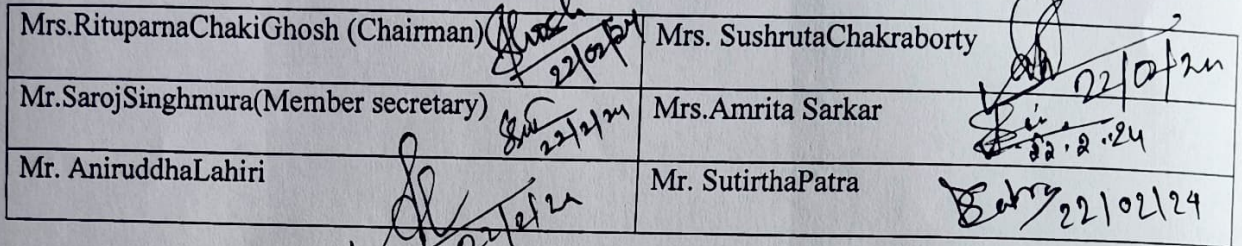 Mrs.RituparnaChakiGhosh (Chairman) 22/02/24 Mrs. SushrutaChakraborty 22/02/24
Mr.SarojSinghmura(Member secretary) 22/2/24 Mrs.Amrita Sarkar 22.2.24
Mr. AniruddhaLahiri 22/2/24 Mr. SutirthaPatra 22/02/24